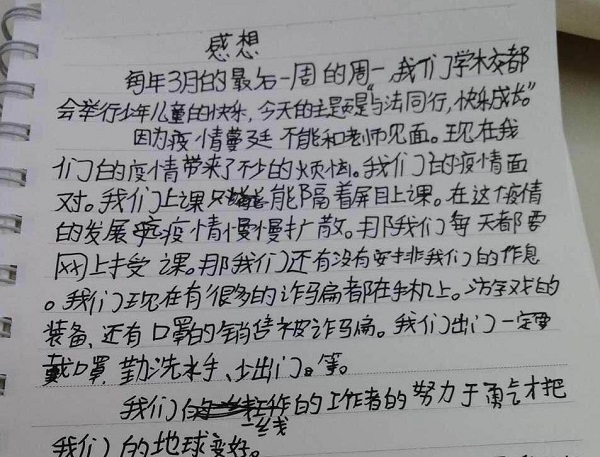 感想
每年3月的最后一周的周一,我们学校都
会举行少年儿童的快乐,今天的主题是“与法同行,快乐成长”。
因为疫情蔓延不能和老师见面。现在我
们的疫情带来了不少的烦恼。我们的疫情面
对。我们上课只能隔着屏目上课。在这个疫情
的发展疫情慢慢扩散。那我们每天都要
网上接受课。那我们还有没有安排我们的作息
。我们现在有很多的诈骗都在手机上。游戏的
装备、还有口罩的销售被诈骗。我们出门一定要
戴口罩,勤洗水手、少出门。等。
我们的一线工作的工作者的努力于勇气才把
我们的地球变好。